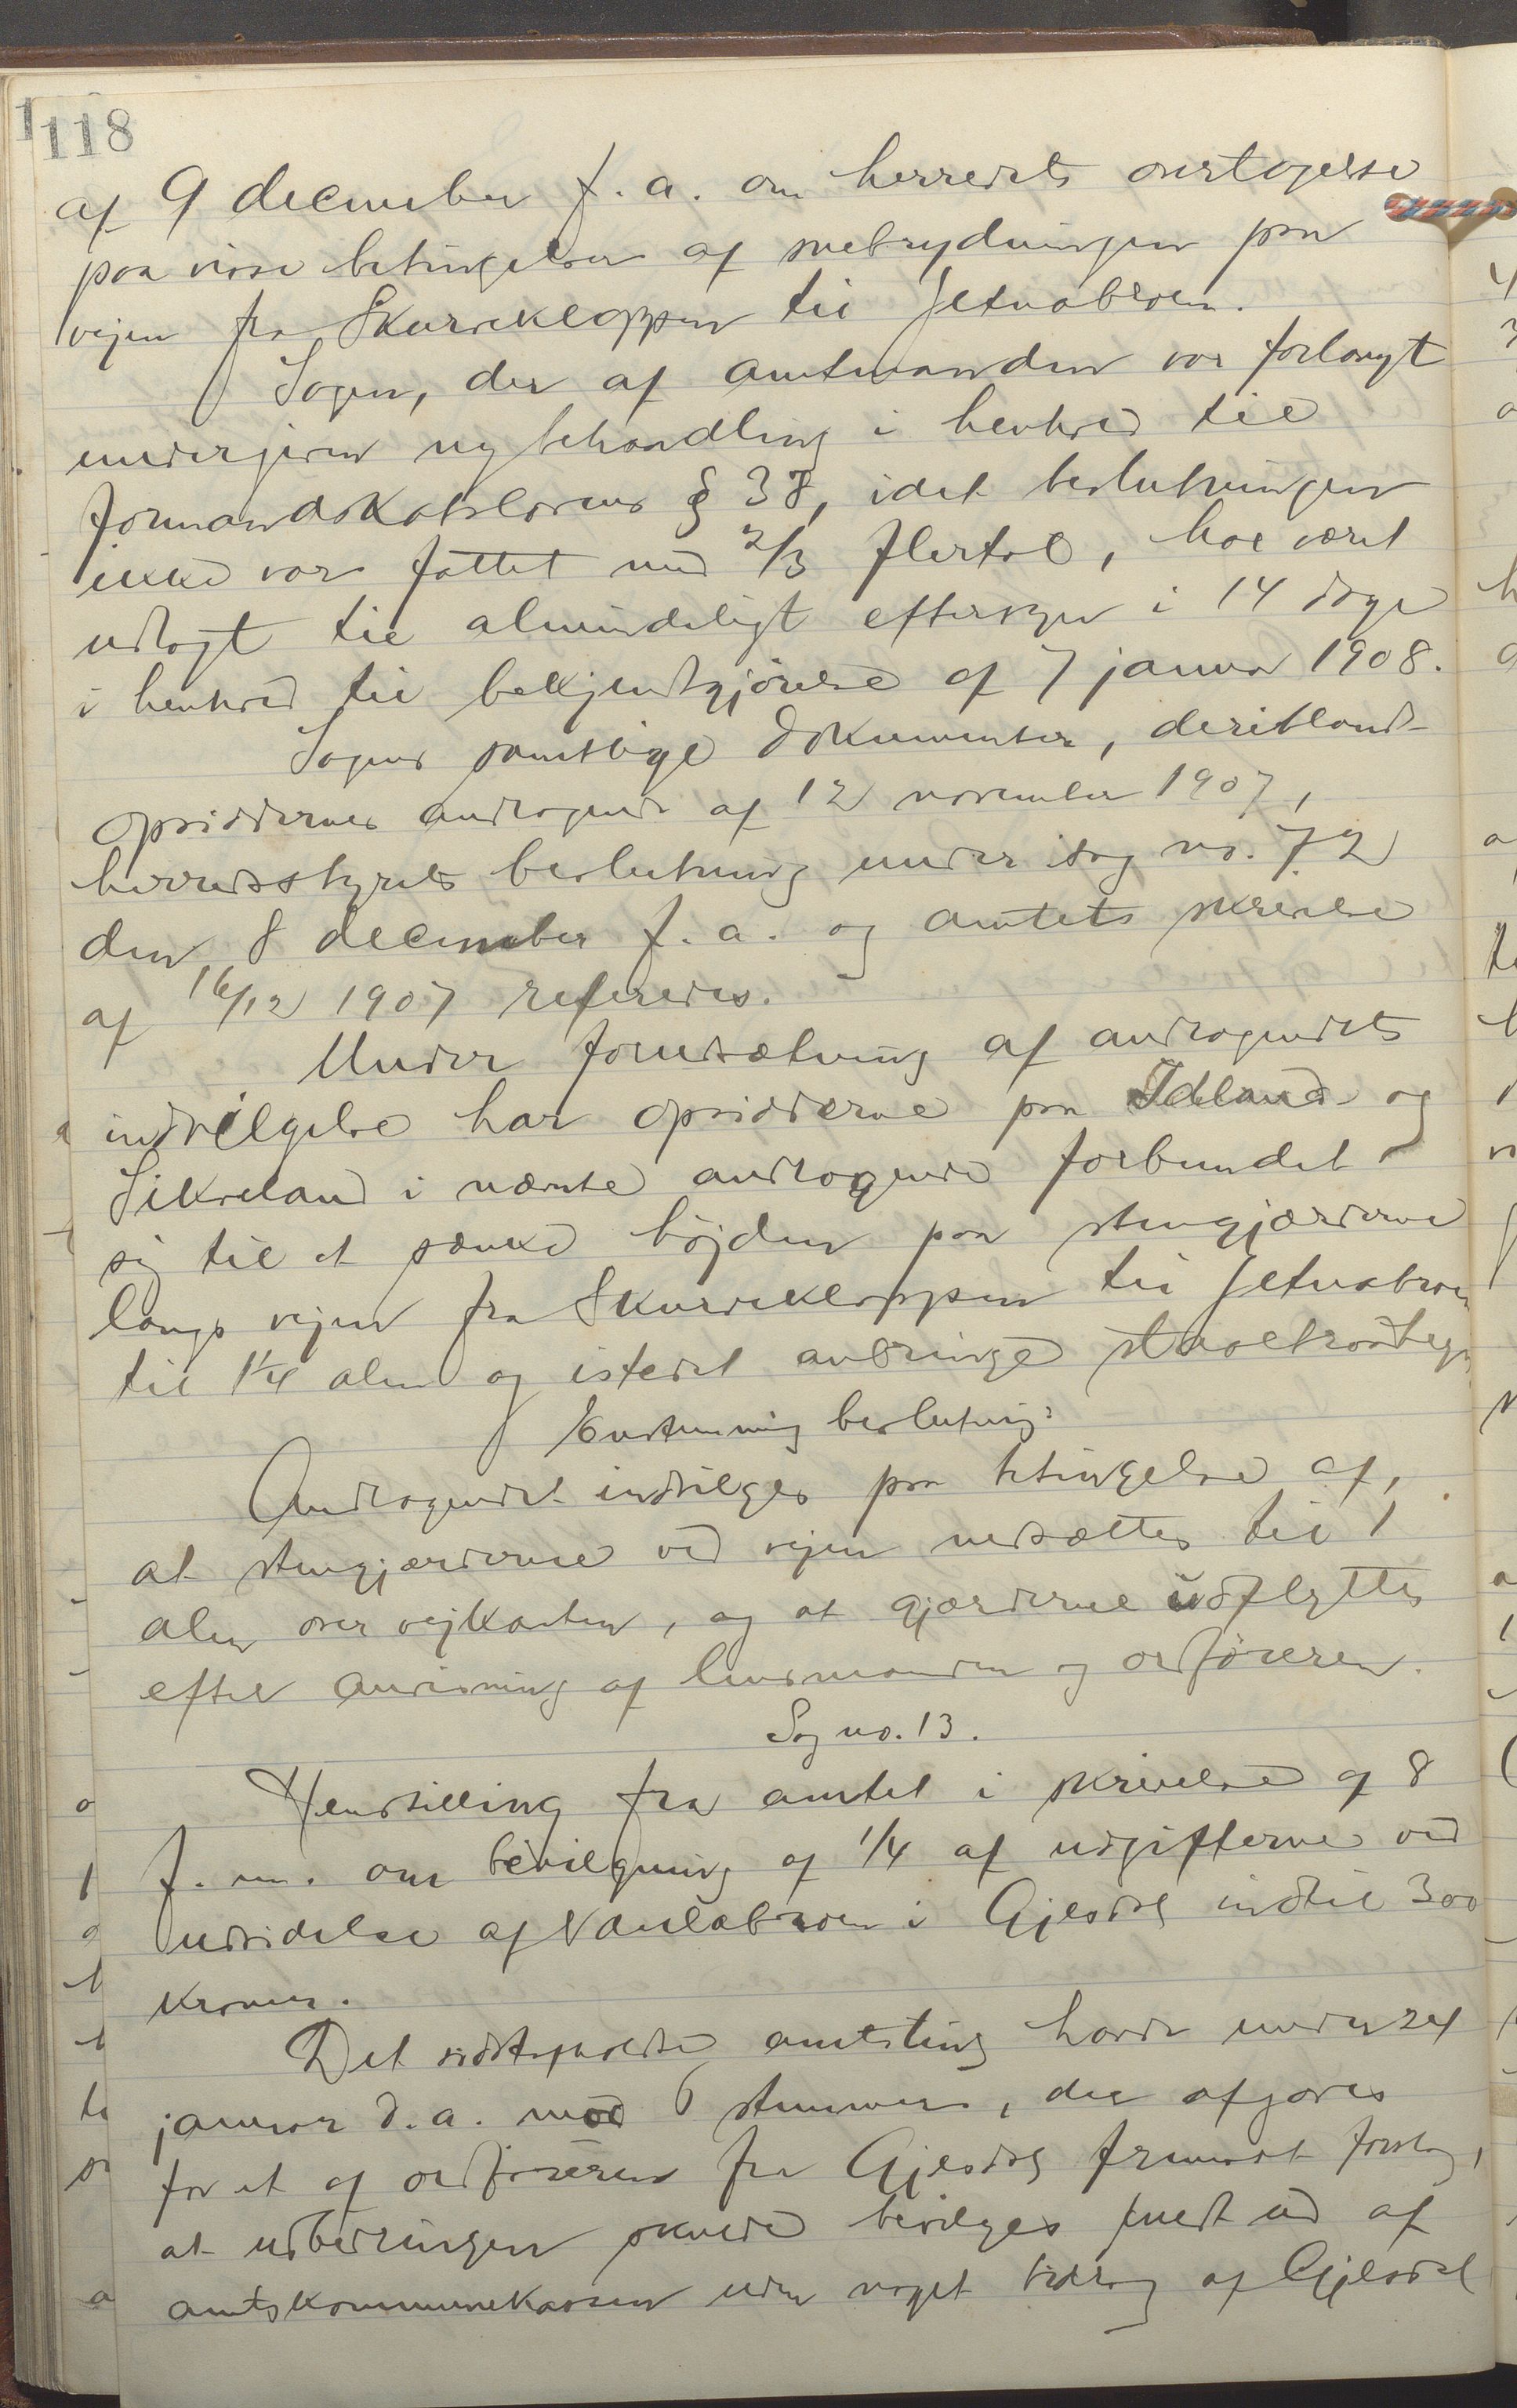 118
af 9 december f. a. om herredets overtagelse
paa visse betingelser af snebrydningen paa
vejen fra Skurvekloppen til Jetnabroen.
Sagen, der af amtmanden var forlangt
undergiven ny behandling i henhold til
formandskabslovens § 38, idet beslutningen
ikke var fattet med 2/3 flertal, har været
udlagt til almindeligt eftersyn i 14 dage
i henhold til bekjendtgjørelse af 7 januar 1908.
Sagens samtlige dokumenter, deriblandt
opsiddernes andragende af 12 november 1907,
herredsstyrets beslutning under sag no. 72
den 8 december f. a. og amtets skrivelse
af 16/12 1907 refereredes.
Under forudsætning af andragendets
indvilgelse har opsidderne paa Idland og
Sikveland i nævnte andragende forbundet
sig til at sænke højden paa stengjærderne
langs vejen fra Skurvekloppen til Jetnabroen
til 1¼ alen og istedet anbringe staaltraadhegn
Enstemmig beslutning:
Andragendet indvilges paa betingelse af,
at stengjærderne ved vejen nedsættes til 1
alen over vejkanten, og at gjærderne udflyttes
efter anvisning af lensmanden og ordføreren.
Sag no. 13.
Henstilling fra amtet i skrivelse af 8
f. m. om bevilgning af 1/4 af udgifterne ved
udvidelse af Vaulabroen i Gjesdal indtil 300
kroner.
Det sidstafholdte amtsting havde under 24
januar d. a. mod 6 stemmer, der afgaves
for et af ordføreren fra Gjesdal fremsat forslag,
at udbedringen skulde bevilges fuldt ud af
amtskommunekassen uden noget bidrag af Gjesdal